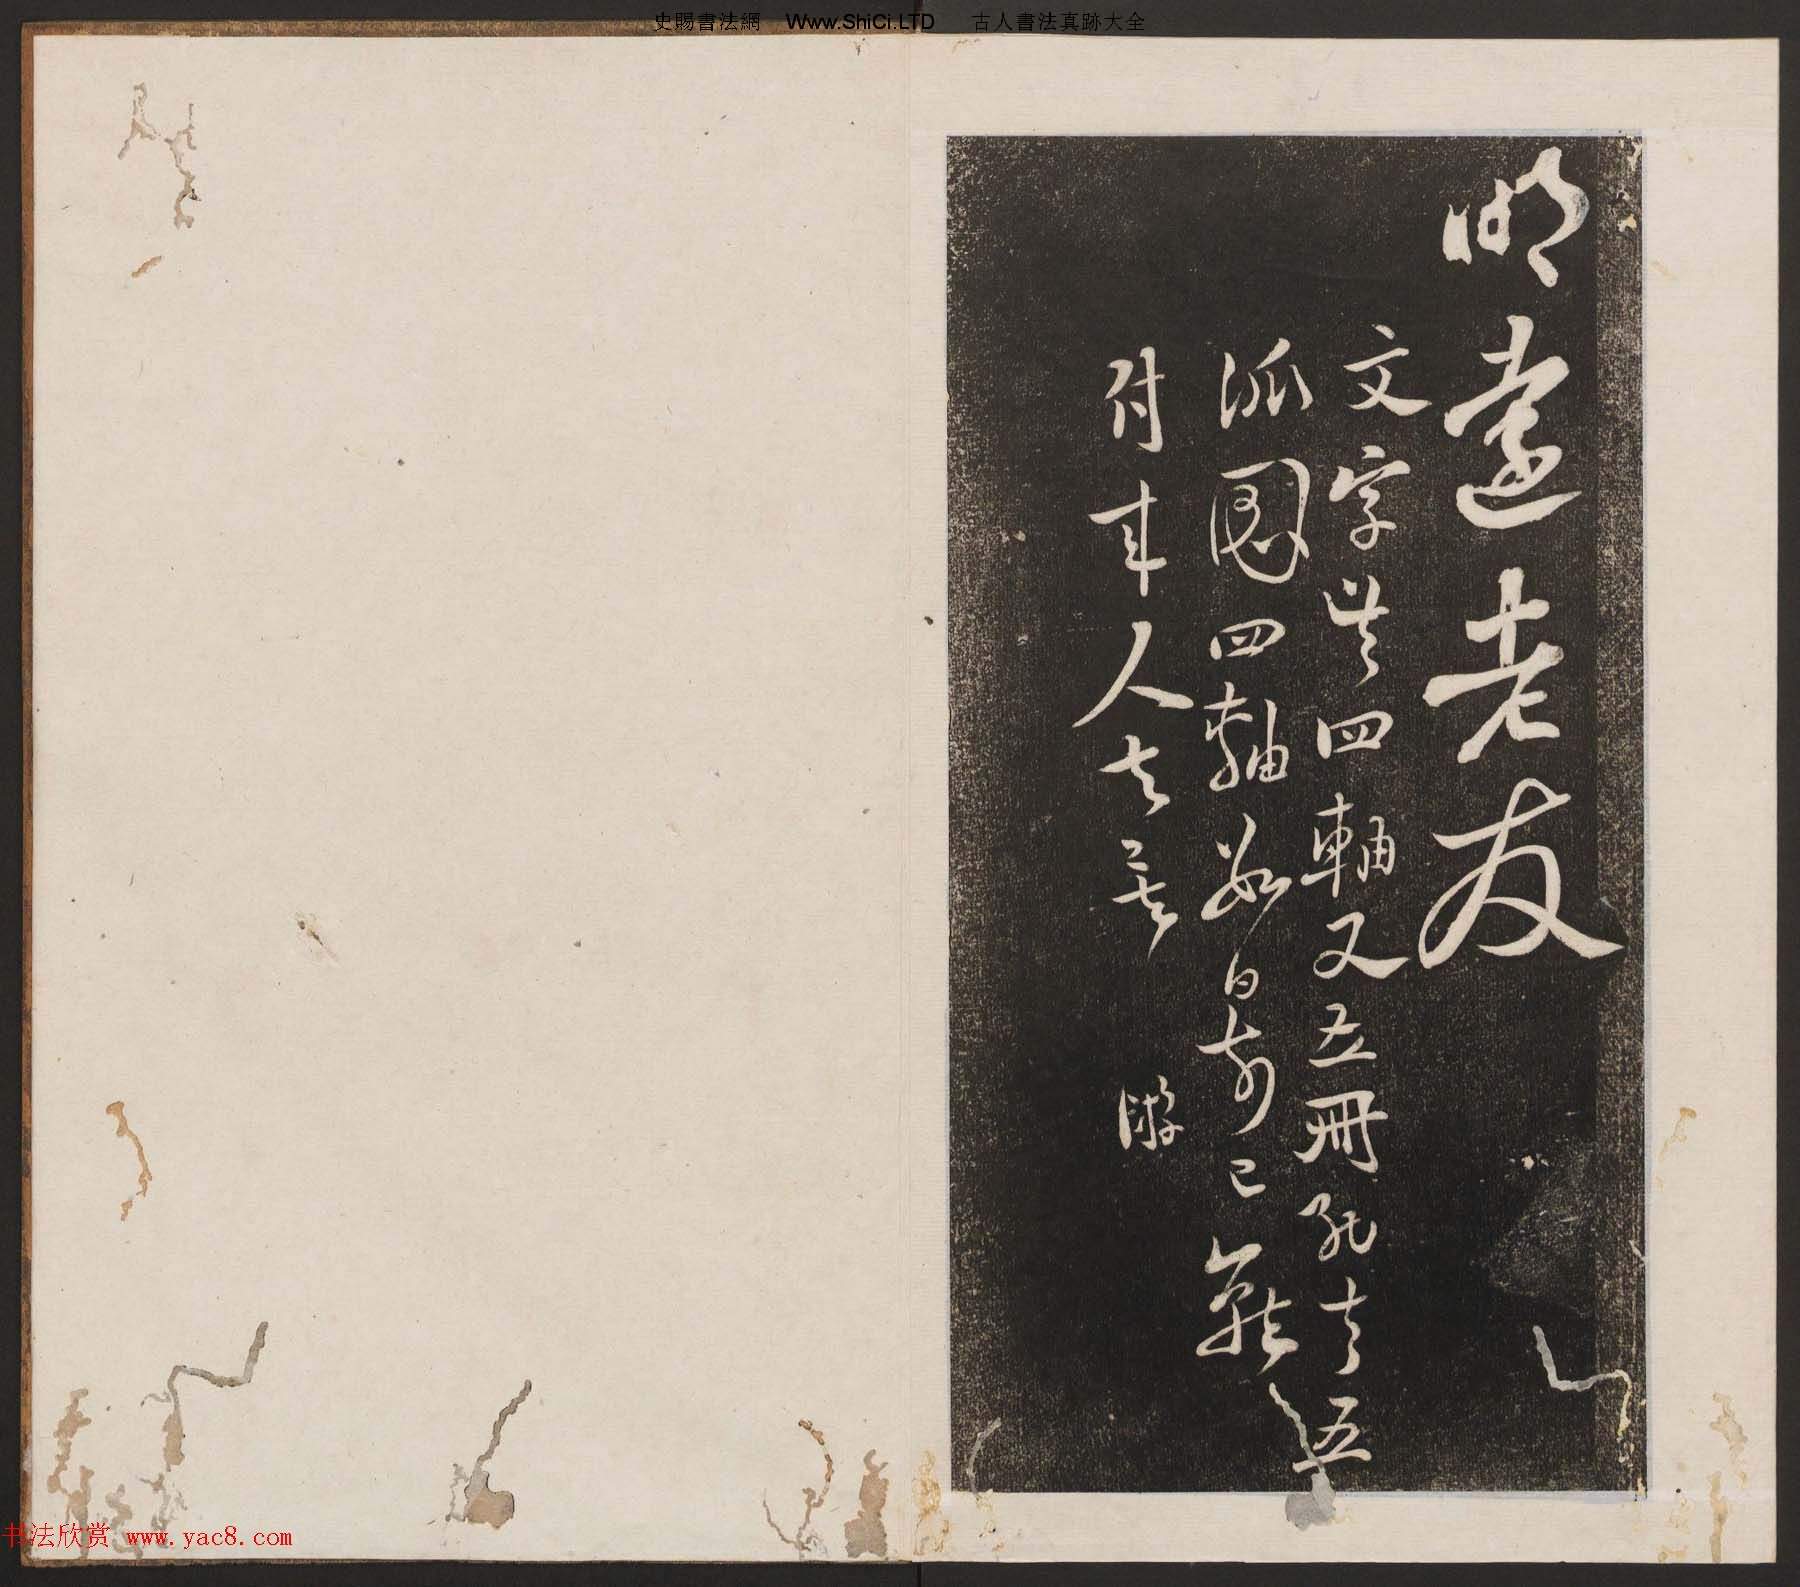 史賜書法網 Www.ShiCi.LTD 古人書法真跡大全
明遠老友
文字共四軸又五冊孔夫五
派圖四軸如日前已
付來人去矣 游
书法欣赏 www.yac8.com